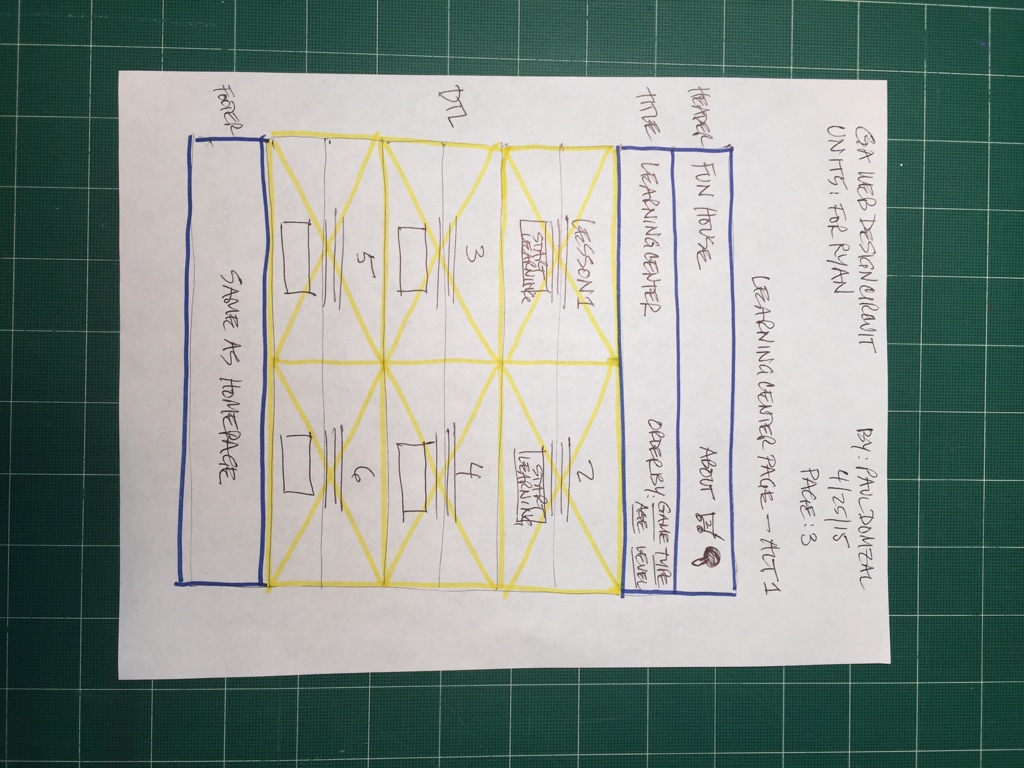 GA WEB DESIGN CIRCUIT
UNITS: FOR RYAN
BY: PAUL DOMZAL
4/25/15
PAGE: 3
LEARNING CENTER PAGE → ALT 1
HEADER
FUN HOUSE
ABOUT
TITLE
LEARNING CENTER
ORDER BY: GAME TYPE
AGE LEVEL
DTL
LESSON 1
START
LEARNING
2
START
LEARNING
3
4
5
6
FOOTER
SAME AS HOMEPAGE